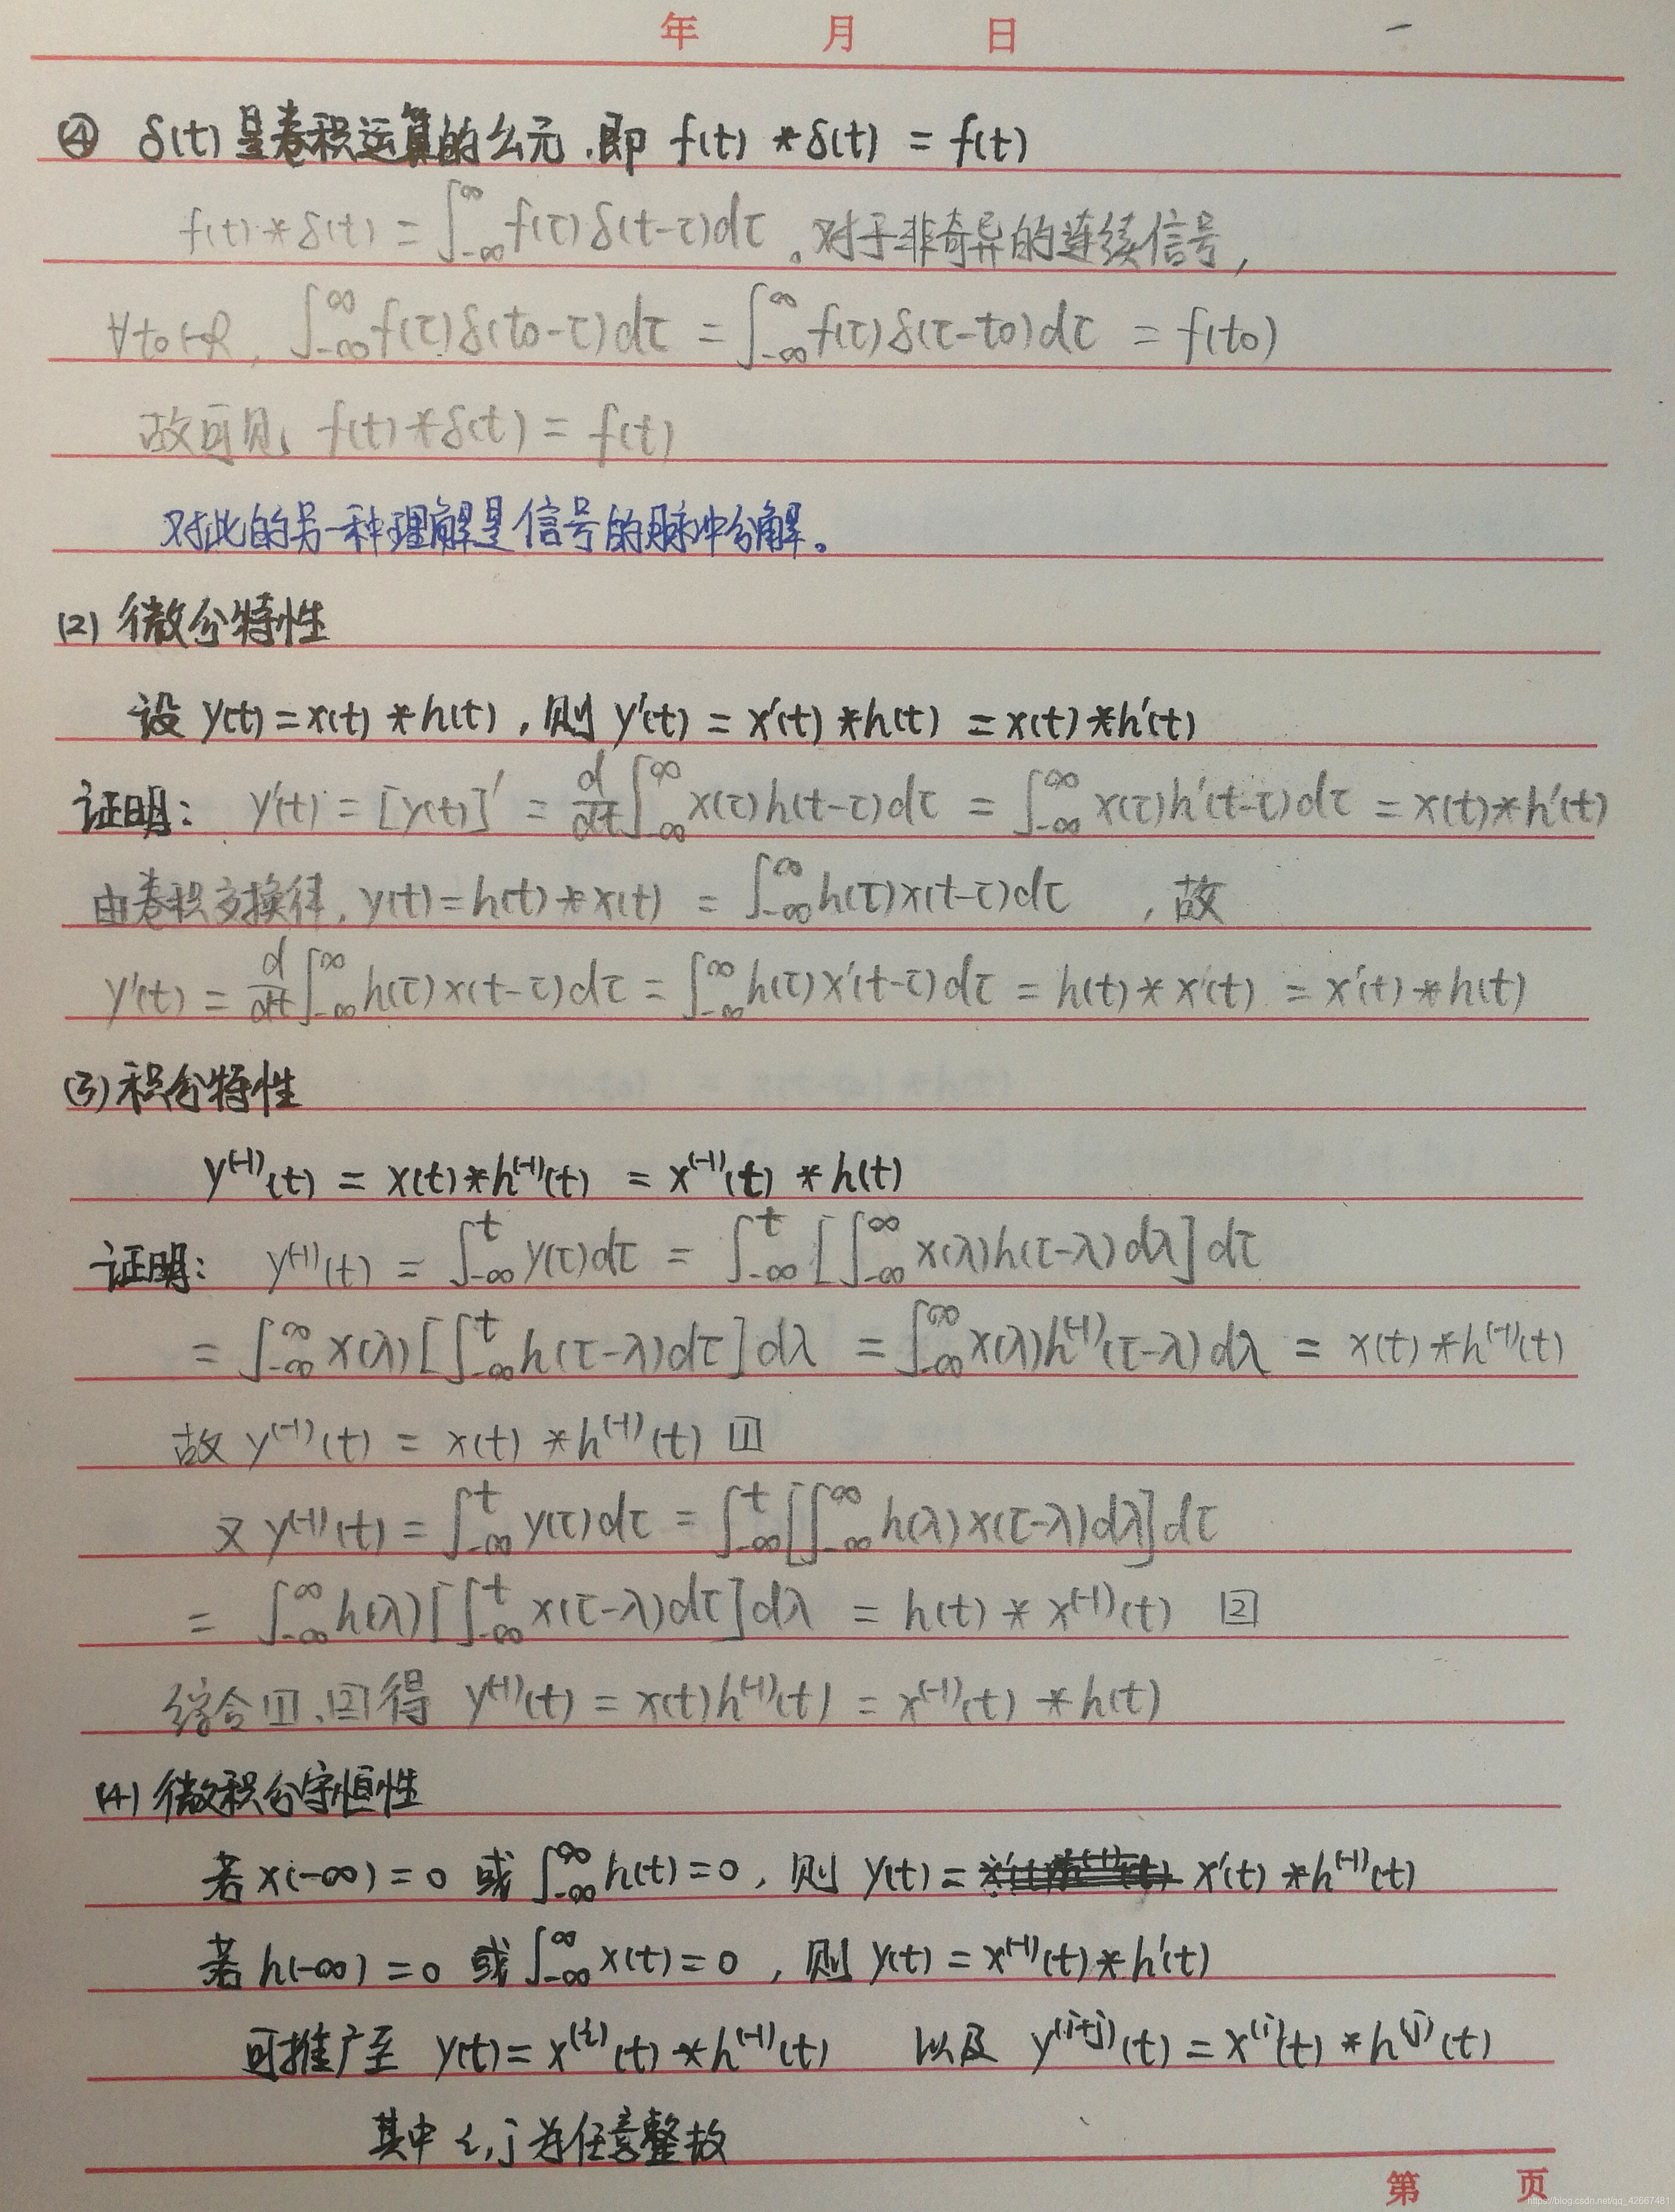 年 月 日
④ δ(t)是卷积运算的幺元.即 f(t) * δ(t) = f(t)
f(t)*δ(t) = ∫_{-∞}^{∞} f(τ)δ(t-τ)dτ 。对于非奇异的连续信号,
∀t₀∈R, ∫_{-∞}^{∞} f(τ)δ(t₀-τ)dτ = ∫_{-∞}^{∞} f(τ)δ(τ-t₀)dτ = f(t₀)
故可见, f(t)*δ(t) = f(t)
对此的另一种理解是信号的脉冲分解。
(2) 微分特性
设 y(t)=x(t) *h(t) , 则 y'(t) = x'(t) *h(t) = x(t)*h'(t)
证明: y'(t) = [y(t)]' = d/dt ∫_{-∞}^{∞} x(τ)h(t-τ)dτ = ∫_{-∞}^{∞} x(τ)h'(t-τ)dτ = x(t)*h'(t)
由卷积交换律, y(t)=h(t)*x(t) = ∫_{-∞}^{∞} h(τ)x(t-τ)dτ , 故
y'(t) = d/dt ∫_{-∞}^{∞} h(τ)x(t-τ)dτ = ∫_{-∞}^{∞} h(τ)x'(t-τ)dτ = h(t)*x'(t) = x'(t)*h(t)
(3)积分特性
y^{(-1)}(t) = x(t)*h^{(-1)}(t) = x^{(-1)}(t) *h(t)
证明: y^{(-1)}(t) = ∫_{-∞}^{t} y(τ)dτ = ∫_{-∞}^{t} [∫_{-∞}^{∞} x(λ)h(τ-λ)dλ]dτ
= ∫_{-∞}^{∞} x(λ)[∫_{-∞}^{t} h(τ-λ)dτ]dλ = ∫_{-∞}^{∞} x(λ)h^{(-1)}(τ-λ)dλ = x(t)*h^{(-1)}(t)
故 y^{(-1)}(t) = x(t) *h^{(-1)}(t) [1]
又 y^{(-1)}(t) = ∫_{-∞}^{t} y(τ)dτ = ∫_{-∞}^{t} [∫_{-∞}^{∞} h(λ)x(τ-λ)dλ]dτ
= ∫_{-∞}^{∞} h(λ)[∫_{-∞}^{t} x(τ-λ)dτ]dλ = h(t) * x^{(-1)}(t) [2]
综合[1]、[2]得 y^{(-1)}(t) = x(t)h^{(-1)}(t) = x^{(-1)}(t) *h(t)
(4) 微积分守恒性
若 x(-∞)=0 或 ∫_{-∞}^{∞} h(t)=0, 则 y(t)= x'(t) *h^{(-1)}(t)
若 h(-∞)=0 或 ∫_{-∞}^{∞} x(t)=0, 则 y(t) = x^{(-1)}(t)*h'(t)
可推广至 y(t)= x^{(i)}(t) *h^{(-i)}(t) 以及 y^{(i+j)}(t) = x^{(i)}(t) *h^{(j)}(t)
其中 i,j为任意整故
第 页
https://blog.csdn.net/qq_42667481